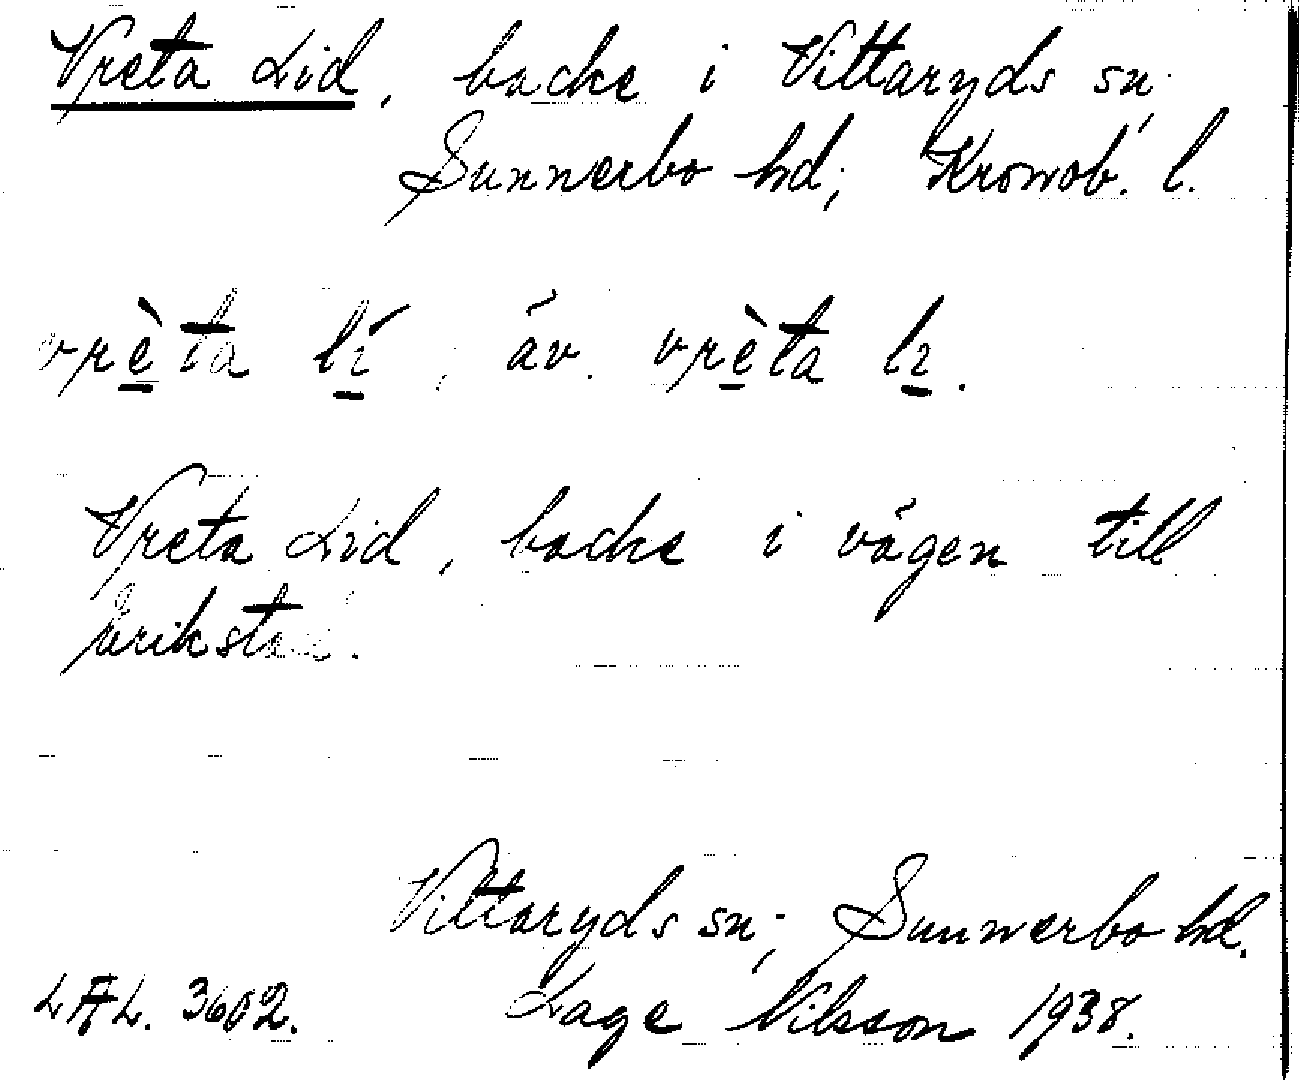 Vreta Lid, backe i Vittaryds sn,
Sunnerbo hd; Kronob. l.
vrèta lí, äv. vrèta lı.
Vreta Lid, backe i vägen till
Erikstad.
Vittaryds sn; Sunnerbo hd.
LAL. 3602. Lage Nilsson 1938.